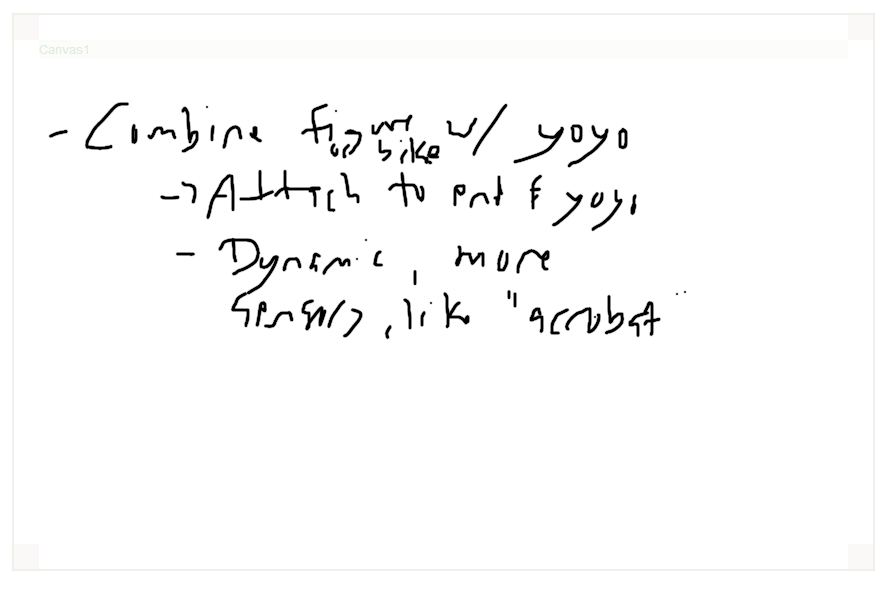 Canvas1
- Combine figure or bike w/ yoyo
-> Attach to end of yoyo
- Dynamic, more
sensory, like "acrobat"